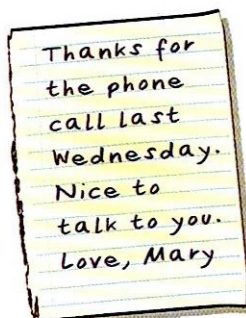 Thanks for
the phone
call last
Wednesday.
Nice to
talk to you.
Love, Mary